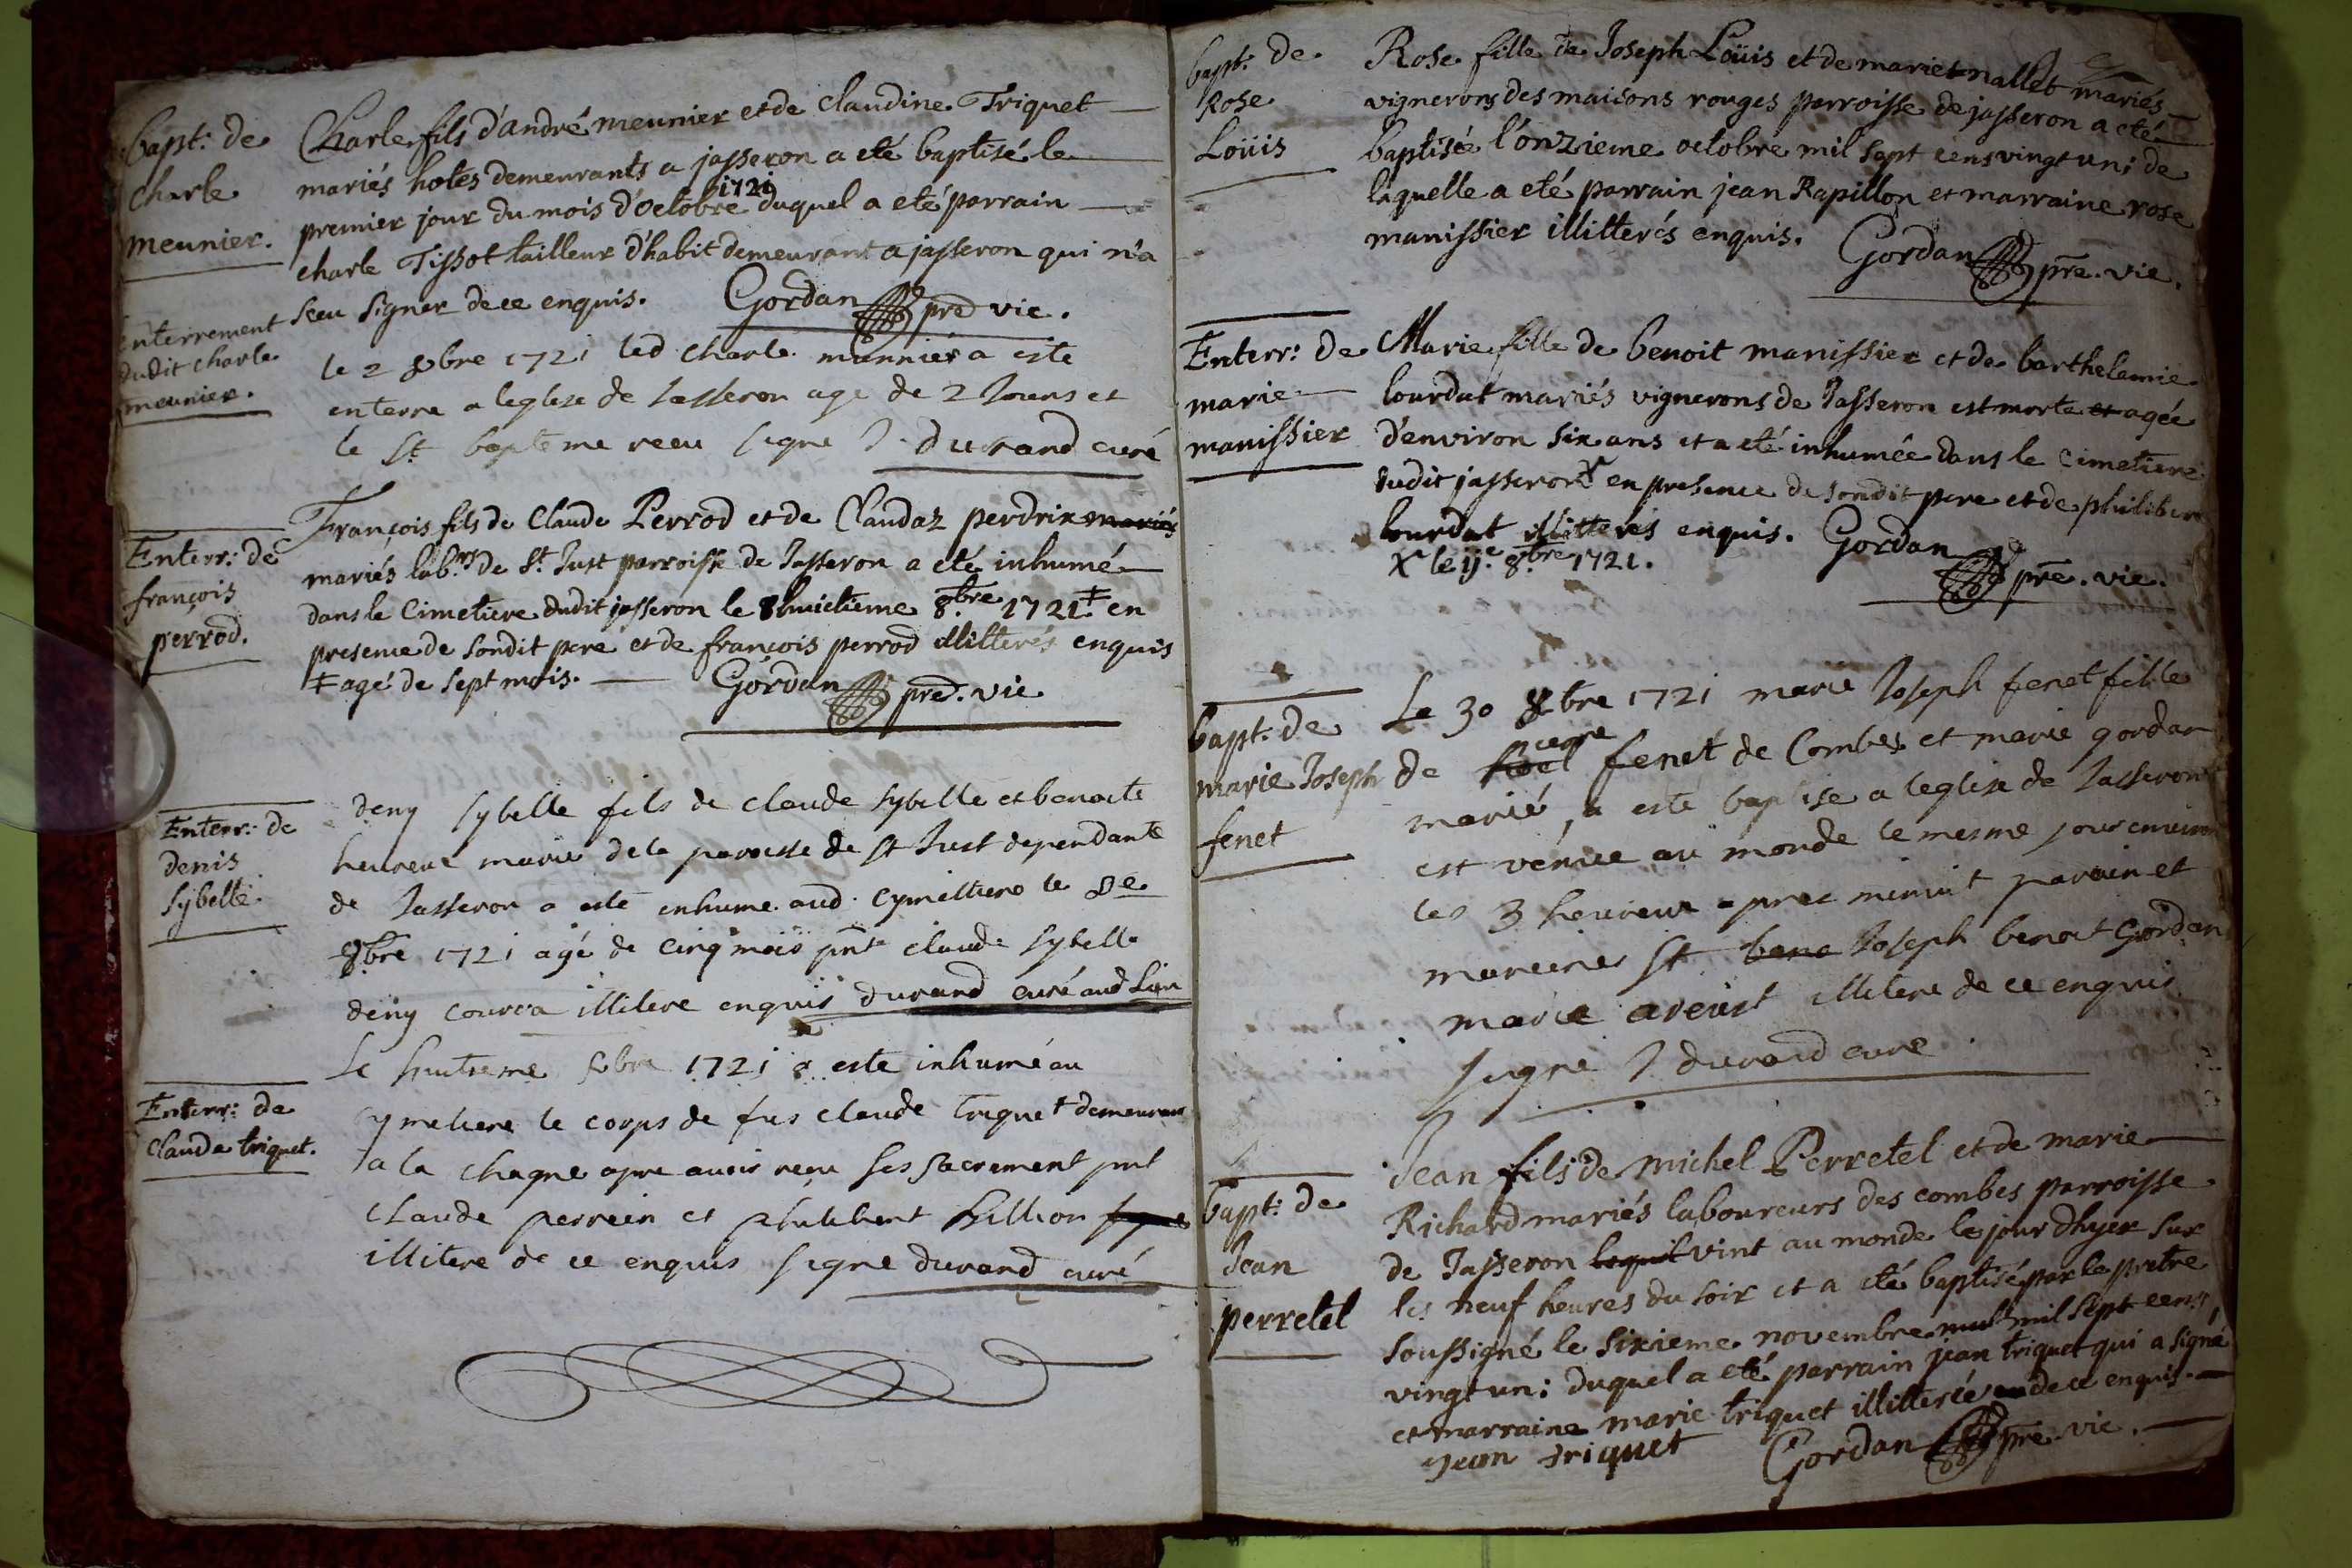 bapt: de
Charle
meunier.
Charle fils d'andré meunier et de claudine Triquet
mariés hotes demeurants a jasseron a eté baptisé le
premier jour du mois d'octobre 1721 duquel a eté parrain
charle Tissot tailleur d'habit demeurant a jasseron qui n'a
sceu signer de ce enquis. Gordan pre vic.
enterrement
dudit charle
meunier.
le 2 8bre 1721 led charle munnier a este
enterre a leglise de Jasseron age de 2 Jours et
le St bapteme receu signe J. durand curé
Enterr: de
françois
perrod.
François fils de Claude Perrod et de Claudaz perdrix mariés
mariés lab.rs de St. Just parroisse de Jasseron a eté inhumé
dans le Cimetiere dudit jasseron le 8 huictieme 8.bre 1721 ‡ en
presence de sondit pere et de françois perrod illitterés enquis
‡ agé de sept mois. Gordan pre. vic
Enterr: de
denis
Sybelle.
deny sybelle fils de claude sybelle et benoite
heureux marie de la paroisse de St Just dependante
de Jasseron a este enhume aud. cymittiere le 8e
8bre 1721 agé de cinq mois pnt claude sybelle
deny courva illitere enquis durand curé aud Lieu
Enterr: de
Claude triquet.
le huitieme 8bre 1721 a este inhumé au
cymetiere le corps de fus claude triquet demeurant
a la chagne apre avoir reçu ses sacrement pnt
claude perrein et philibert
illitere de ce enquis signe durand curé
bapt: de
Rose
Loüis
Rose fille de Joseph Loüis et de marie nallet mariés
vignerons des maisons rouges parroisse de jasseron a eté
baptisée l'onzieme octobre mil sept cens vingt un; de
laquelle a eté parrain jean Rapillon et marraine rose
manissier illitterés enquis. Gordan pre. vic.
Enterr: de
marie
manissier
Marie fille de benoit manissier et de barthelemie
lourdat mariés vignerons de Jasseron est morte et agée
d'environ six ans et a eté inhumée dans le cimetiere
dudit jasseron X en presence de sondit pere et de philibert
lourdat illitterés enquis. Gordan pre. vic.
X le ij.e 8.bre 1721.
bapt: de
marie Joseph
fenet
Le 30 8bre 1721 marie Joseph fenet fille
de fenet de Combes et marie gordan
marié, a este baptise a leglise de Jasseron
est venue au monde le mesme jour environ
les 3 heureux apres minuit parain et
mareine St bene Joseph benoit Gordan
marie illitere de ce enquis
signe J durand cure
bapt: de
Jean
perretel
Jean fils de michel Perretel et de marie
Richard mariés laboureurs des combes parroisse
de Jasseron lequel vint au monde le jour dhyer sur
les neuf heures du soir et a eté baptisé par le pretre
soussigné le sixieme novembre mil sept cens
vingt un; duquel a eté parrain jean triquet qui a signé
et marraine marie triquet illitterée de ce enquis.
Jean triquet Gordan pre. vic.